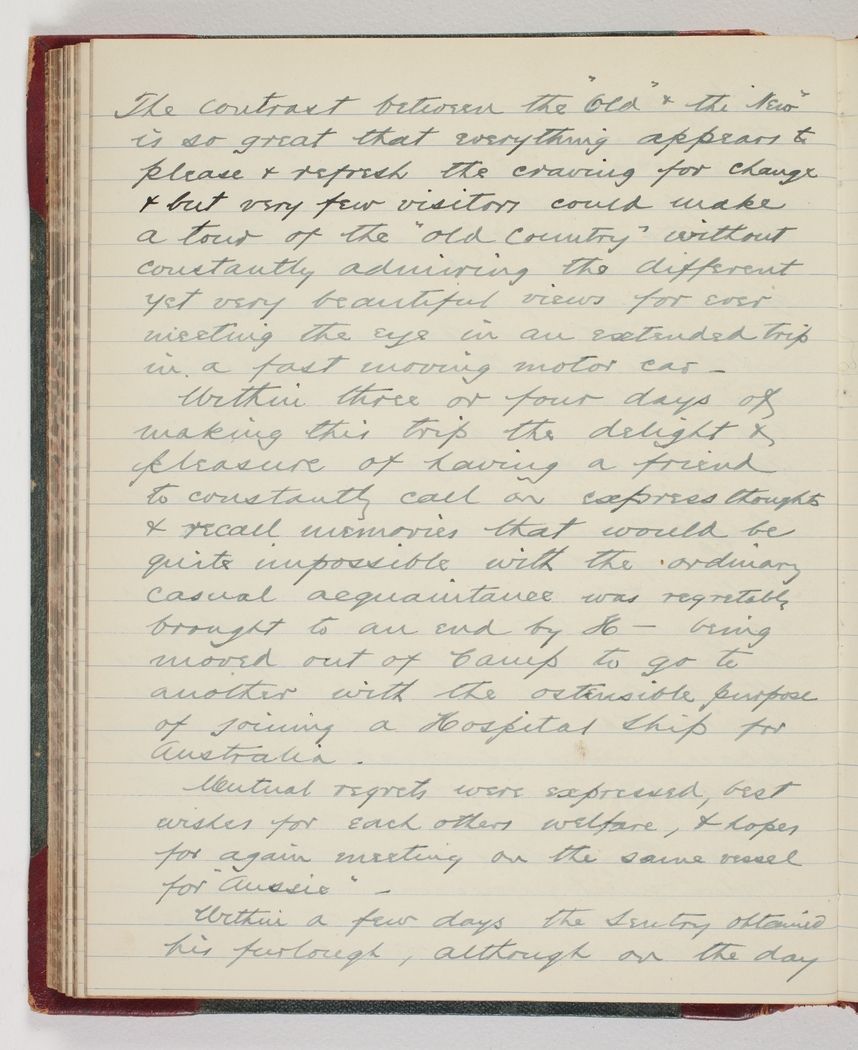 The contrast between the "Old" & the "New"
is so great that everything appears to
please & refresh the craving for change
& but very few visitors could make
a tour of the "old Country" without
constantly admiring the different
yet very beautiful views for ever
meeting the eye in an extended trip
in a fast moving motor car –
Within three or four days of
making this trip the delight &
pleasure of having a friend
to constantly call on express thoughts
& recall memories that would be
quite impossible with the ordinary
casual acquaintance was regretably
brought to an end by H — being
moved out of Camp to go to
another with the ostensible purpose
of joining a Hospital Ship for
Australia .
Mutual regrets were expressed, best
wishes for each others welfare, & hopes
for again meeting on the same vessel
for "Aussie" –
Within a few days the Sentry obtained
his furlough , although on the day